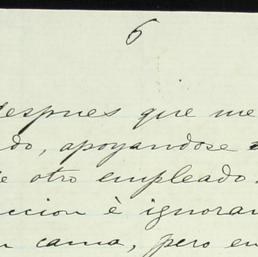 6
despues que me
do, apoyandose
e otro empleado.
ccion è ignoran
cama, pero en